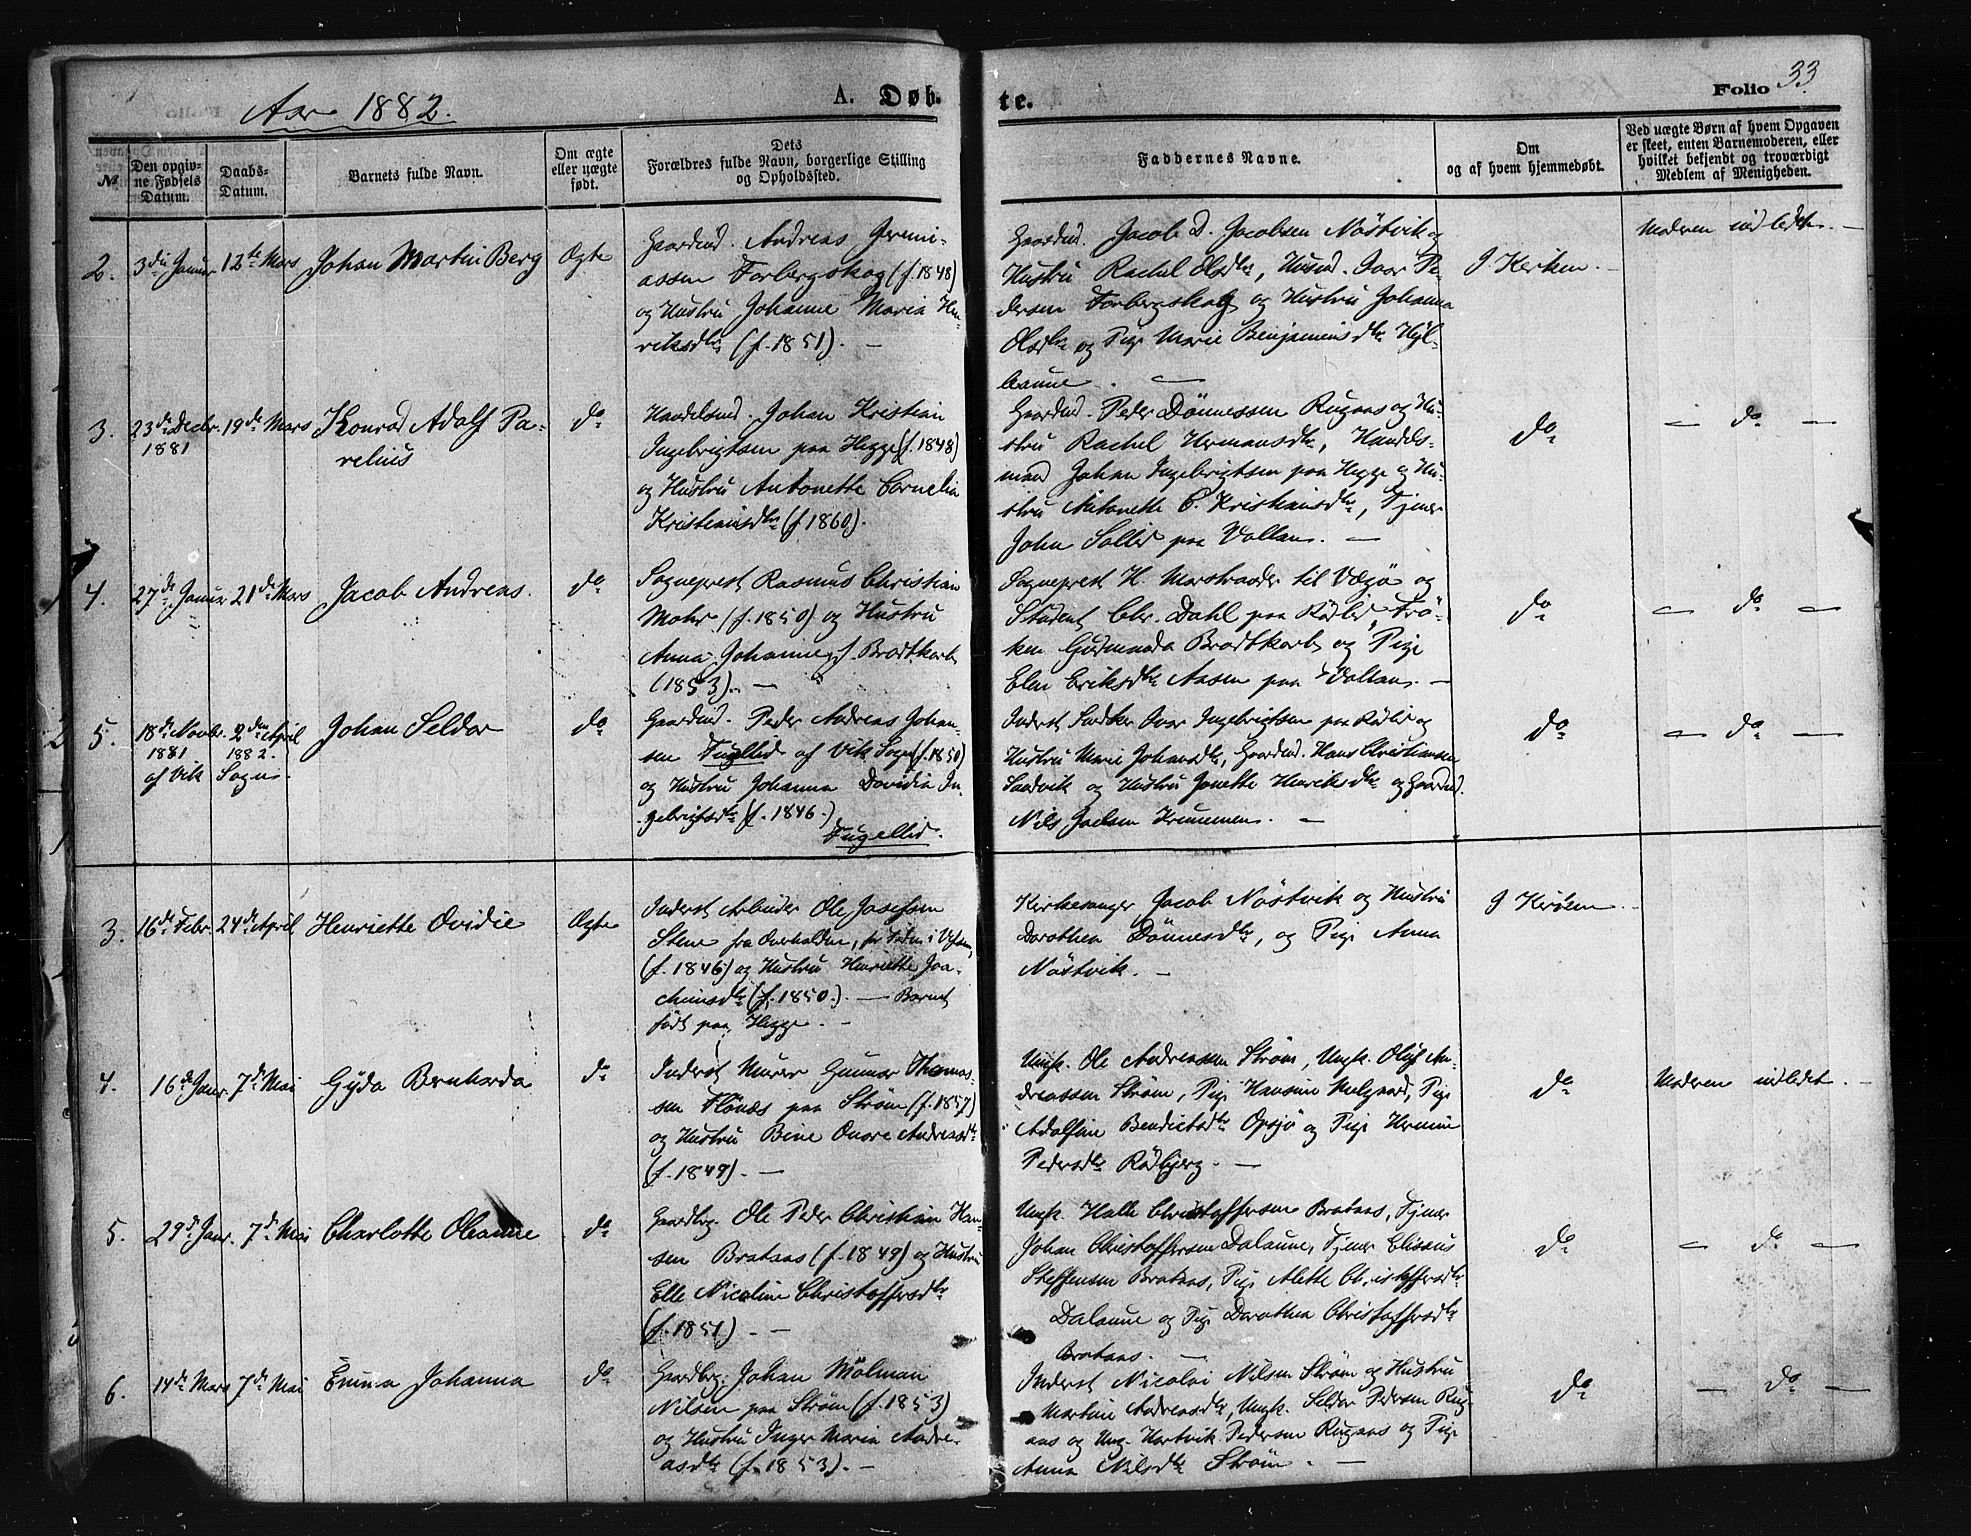 Aar 1882.
A. Døb-
te.
Folio 33
No
Den opgiv-
ne Fødsels
Datum.
Daabs-
Datum.
Barnets fulde Navn.
Om ægte
eller uægte
født.
Dets
Forældres fulde Navn, borgerlige Stilling
og Opholdssted.
Faddernes Navne.
Om
og af hvem hjemmedøbt.
Ved uægte Børn af hvem Opgaven
er skeet, enten Barnemoderen, eller
hvilket bekjendt og troværdigt
Medlem af Menigheden.
2.
3die Januar
12te Mars
Johan Martin Berg
Ægte
Gaardmd. Andreas Jeremi-
assen Forbergskog (f. 1848)
og Hustru Johanne Maria Hen-
riksdtr (f. 1851). —
Gaardmd. Jacob D. Jacobsen Nöstvik og
Hustru Rachel Olsdtr, Husmd. Ivar Pe-
dersen Forbergskog og Hustru Johanna
Olsdtr og Pige Marie Benjaminsdtr Hyl-
laune. —
I Kirken. —
Moderen indledet. —
3.
23de Decbr.
1881
19de Mars
Konrad Adolf Pa-
relius
do
Handelsmd. Johan Kristian
Ingebrigtsen paa Hegge (f. 1848)
og Hustru Antonette Cornelia
Kristiansdtr (f. 1860).
Gaardmd. Peder Dönnessen Rugaas og Hu-
stru Rachel Hermansdtr, Handels-
mand Johan Ingebrigtsen paa Hegge og Hu-
stru Antonette C. Kristiansdtr, Tjener
John Sollid paa Vollan. —
do
— do —
4.
27de Januar
21de Mars
Jacob Andreas.
do
Sogneprest Rasmus Christian
Mohr (f. 1850) og Hustru
Anna Johanne f. Brodtkorb
(1853). —
Sogneprest H. Marstrander til Vægø og
Student Chr. Dahl paa Rödlid, Frö-
ken Gudmunda Brodtkorb og Pige
Elen Eriksdtr Aasen paa Vollan. —
do
— do —
5.
18de Novbr.
1881
af Vik Sogn.
2den April
1882.
Johan Seldor
do
Gaardmd. Peder Andreas Johan-
sen Fugllid af Vik Sogn (f. 1850)
og Hustru Johanna Davidia In-
gebrigtsdtr (f. 1846.)
Fugellid.
Inderst Ivar Ingebrigtsen paa Rödlid og
Hustru Marie Johansdtr, Gaardmd. Hans Christiansen
Sandvik og Hustru Jonette Henriksdtr og Gaardmd.
Nils Joelsen Krummen. —
do
— do —
3.
16de Febr.
24de April
Henriette Ovidie
Ægte
Inderst Arbeider Ole Josefsen
Stene fra Overhalden, før Faden i Vefsen,
(f. 1846) og Hustru Henriette Joa-
chimsdtr (f. 1850.) — Barnet
født paa Hegge. —
Kirkesanger Jacob Nöstvik og Hustru
Dorothea Dönnesdtr, og Pige Anna
Nöstvik. —
I Kirken. —
4.
16de Janr.
7de Mai
Gyda Bernharda
do
Inderst Murer Gunnar Thomas-
sen Flönæs paa Strøm (f. 1857)
og Hustru Bine Onore Andreasdtr
(f. 1849). —
Ungk. Ole Andreassen Strøm, Ungk. Oluf An-
dreassen Strøm, Pige Hansine Melgaard, Pige
Adolfine Bendictsdtr Opsjö og Pige Hermine
Pedersdtr Rödbjerg. —
do
Moderen indledet. —
5.
29de Janr.
7de Mai
Charlotte Oleanne
do
Gaardbrg. Ole Peder Christian Han-
sen Brataas (f. 1849) og Hustru
Elle Nicoline Christoffersdtr
(f. 1851). —
Ungk. Halle Christoffersen Brataas, Tjener
Johan Christoffersen Dalaune, Tjener Elisæus
Steffensen Brataas, Pige Alette Christoffersdtr
Dalaune og Pige Dorothea Christoffersdtr
Brataas. —
do
— do —
6.
14de Mars
7de Mai
Emma Johanna
do
Gaardbrg. Johan Mölman
Nilsen paa Strøm (f. 1853)
og Hustru Inger Maria Andre-
asdtr (f. 1853). —
Inderst Nicolai Nilsen Strøm og Hustru
Martine Andreasdtr, Ungk. Seldor Pedersen Rug-
aas og Ung. Hartvik Pedersen Rugaas og Pige
Anna Nilsdtr Strøm. —
do
— do —